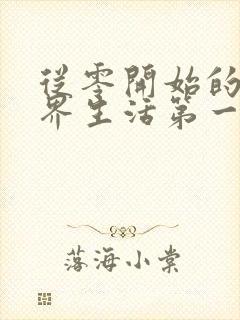 從零開始的
界生活第一
落海小棠